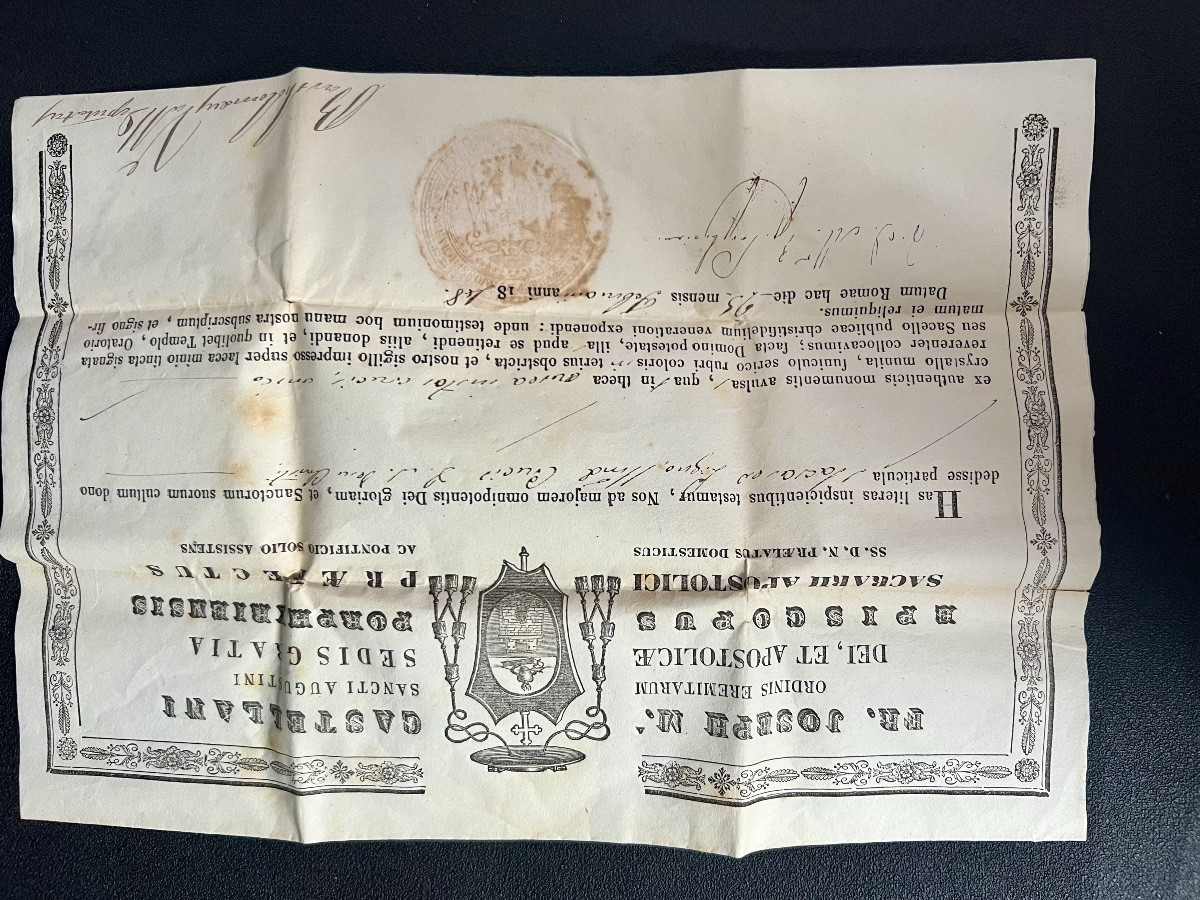 FR. JOSEPH M.ᴬ CASTELLANI
ORDINIS EREMITARUM SANCTI AUGUSTINI
DEI, ET APOSTOLICÆ SEDIS GRATIA
EPISCOPUS PORPHIRIENSIS
SACRARII APOSTOLICI PRÆFECTUS
SS. D. N. PRÆLATUS DOMESTICUS AC PONTIFICIO SOLIO ASSISTENS
Has literas inspicientibus testamur, Nos ad majorem omnipotentis Dei gloriam, et Sanctorum suorum cultum dono
dedisse particula Sacra ex Ligno Crucis D. N. Jesu Christi
ex authenticis monumentis avulsa, qua in theca aurea instar crucis, unico
crystallo munita, funiculo serico rubri coloris interius obstricta, et nostro sigillo impresso super lacca minio tincta signata
reverenter collocavimus; facta Domino potestate, illa apud se retinendi, aliis donandi, et in quolibet Templo, Oratorio,
seu Sacello publicae christifidelium venerationi exponendi: unde testimonium hoc manu nostra subscriptum, et signo fir-
matum ei reliquimus.
Datum Romae hac die 25 mensis Februarii anni 1848.